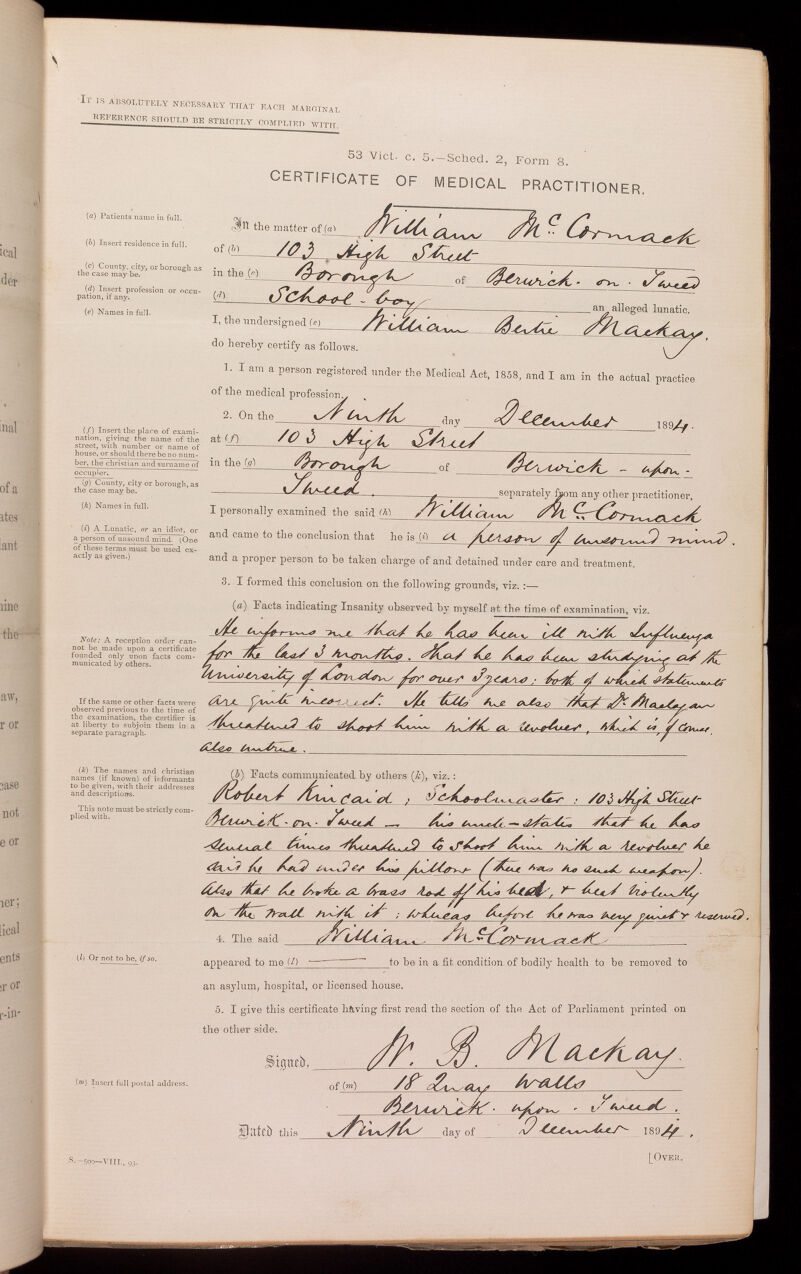 It is absolutely necessary that each marginal
reference should be strictly complied with.
53 Vict. c. 5.—Sched. 2, Form 8.
CERTIFICATE OF MEDICAL PRACTITIONER.
(a) Patients name in full.
(b) Insert residence in full.
(c) County, city, or borough as
the case may be.
(d) Insert profession or occu-
pation, if any.
(e) Names in full.
In the matter of (a) William McCormack
of (b) 103 High Street
in the (c) Borough of Berwick-on-Tweed
(d) School-boy an alleged lunatic.
I, the undersigned (e) William Bertie Mackay.
do hereby certify as follows.
1. I am a person registered under the Medical Act, 1858, and I am in the actual practice
of the medical profession.
2. On the Ninth day December 1894.
(f) Insert the place of exami-
nation, giving the name of the
street, with number or name of
house, or should there be no num-
ber, the christian and surname of
occupier.
(g) County, city or borough, as
the case may be.
(h) Names in full.
(i) A Lunatic, or an idiot, or
a person of unsound mind. (One
of these terms must be used ex-
actly as given.)
at (f) 103 High Street
in the (g) Borough of Berwick-upon-
Tweed. separately from any other practitioner,
I personally examined the said (h) William McCormack
and came to the conclusion that he is (i) a person of unsound mind.
and a proper person to be taken charge of and detained under care and treatment.
3. I formed this conclusion on the following grounds, viz. :—
(a) Facts indicating Insanity observed by myself at the time of examination, viz.
Note: A reception order can-
not be made upon a certificate
founded only upon facts com-
municated by others.
If the same or other facts were
observed previous to the time of
the examination, the certifier is
at liberty to subjoin them in a
separate paragraph.
He informs me that he has been ill with Influenza
for the last 3 months. That he has been studying at the
University of London for over 3 years; both of which statements
are quite incorrect. He tells me also that Dr. Maclagan
threatened to shoot him with a revolver, which is, of course,
also untrue.
(k) The names and christian
names (if known) of informants
to be given, with their addresses
and descriptions.
This note must be strictly com-
plied with.
(b) Facts communicated by others (k), viz. :
Robert Kincaid; Schoolmaster: 103 High Street
Berwick-on-Tweed — his uncle – states that he has
several times threatened to shoot him with a revolver he
said he had under his pillow (there was no such weapon).
Also that he broke a brass rod off his bed, & beat violently
on the wall with it; whereas before he was very quiet & reserved.
4. The said William McCormack
(l) Or not to be, if so.
appeared to me (l) — to be in a fit condition of bodily health to be removed to
an asylum, hospital, or licensed house.
5. I give this certificate having first read the section of the Act of Parliament printed on
the other side.
Signed, W. B. Mackay.
(m) Insert full postal address.
of (m) 18 Quay Walls
Berwick-upon-Tweed.
Dated this Ninth day of December 1894.
S.—500—VIII., 93.
[Over.